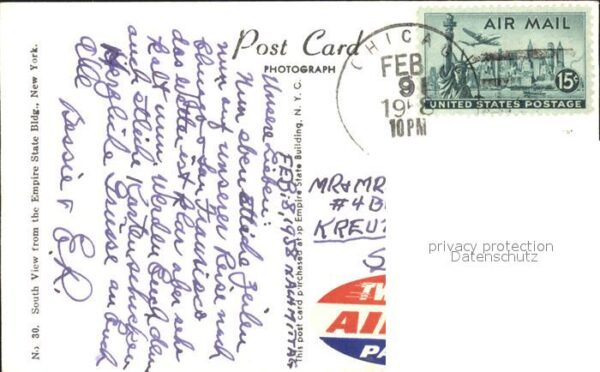 No. 30. South View from the Empire State Bldg., New York.
Post Card
PHOTOGRAPH
This post card purchased at top Empire State Building, N. Y. C.
FEB. 8, 1958 NACHMITTAG
Unsere Lieben:
Nun eben etliche Zeilen
nur auf unserer Reise nach
Chicago & San Francisco
das Wetter ist klar aber sehr
kalt nun. Werden Euch dann
auch etliche Karten schicken.
Herzliche Grüsse an Euch
Alle Bessie & E.R.
CHICAGO
FEB
9
1958
10 PM
AIR MAIL
15¢
UNITED STATES POSTAGE
MR & MR
#4 B
KREUZ
TW
AI
PA
privacy protection
Datenschutz